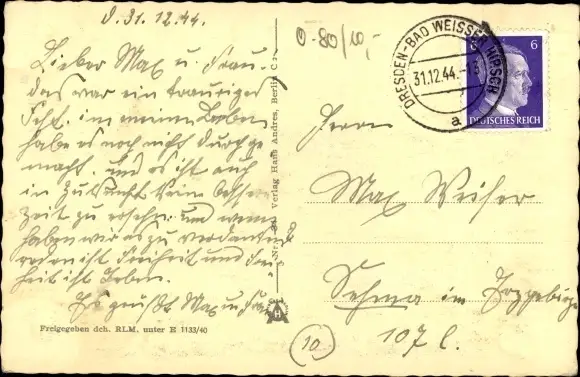 D. 31. 12. 44.
Lieber Max u. Frau.
das war ein trauriges
Fest. in meinem Leben
habe es noch nicht durchge
macht. und es ist auch
in Zukunft keine bessere
Zeit zu ersehn. und wenn
haben wir es zu verdanken
Freiheit und Frei
heit ist Leben.
Es grüßt Max u. Frau
Freigegeben dch. RLM. unter E 1133/40
Verlag Hans Andres, Berlin C 2
0-80/10,-
DRESDEN-BAD WEISSER HIRSCH
31.12.44.-13
a
6 6
DEUTSCHES REICH
Herrn
Max Weiser
Sehma im Erzgebirge
107 c.
(10)